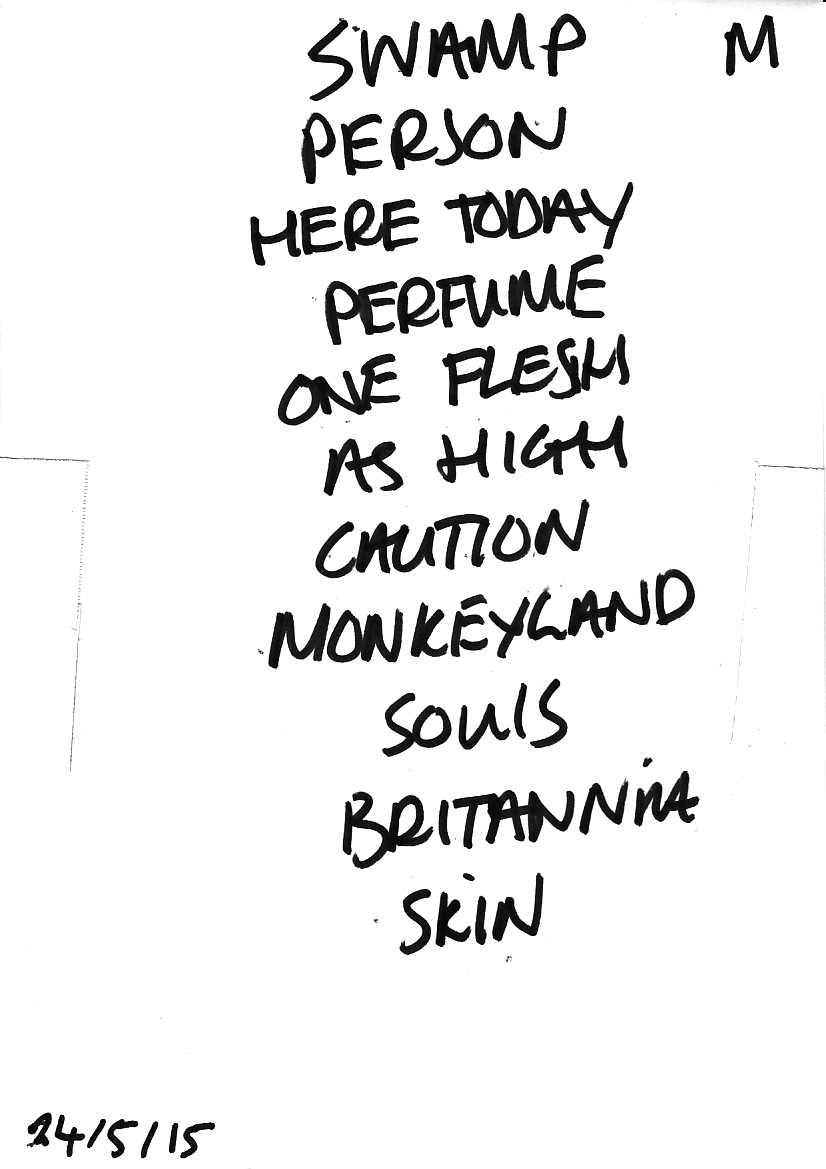 SWAMP M
PERSON
HERE TODAY
PERFUME
ONE FLESH
AS HIGH
CAUTION
MONKEYLAND
SOULS
BRITANNiA
SKiN
24/5/15